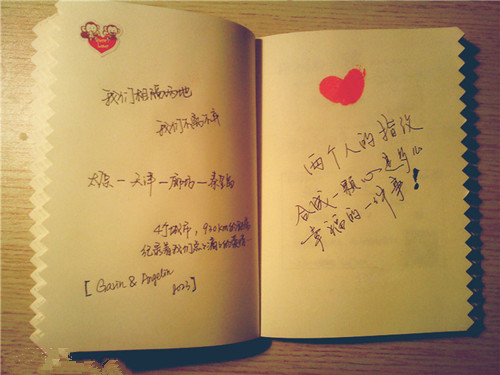 我们相隔两地
我们不离不弃
太原一天津一廊坊一秦皇岛
4个城市，930km的距离
纪录着我们点点滴滴的
[Gavin & Angelin
两个人的指纹
合成一颗心是多么
幸福的一件事！